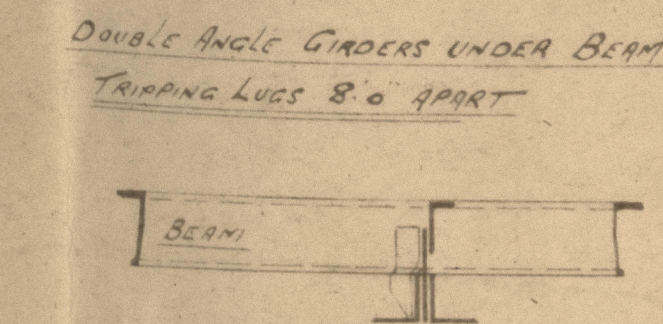 DOUBLE ANGLE GIRDERS UNDER BEAM
TRIPPING LUGS 8'0" APART
BEAM